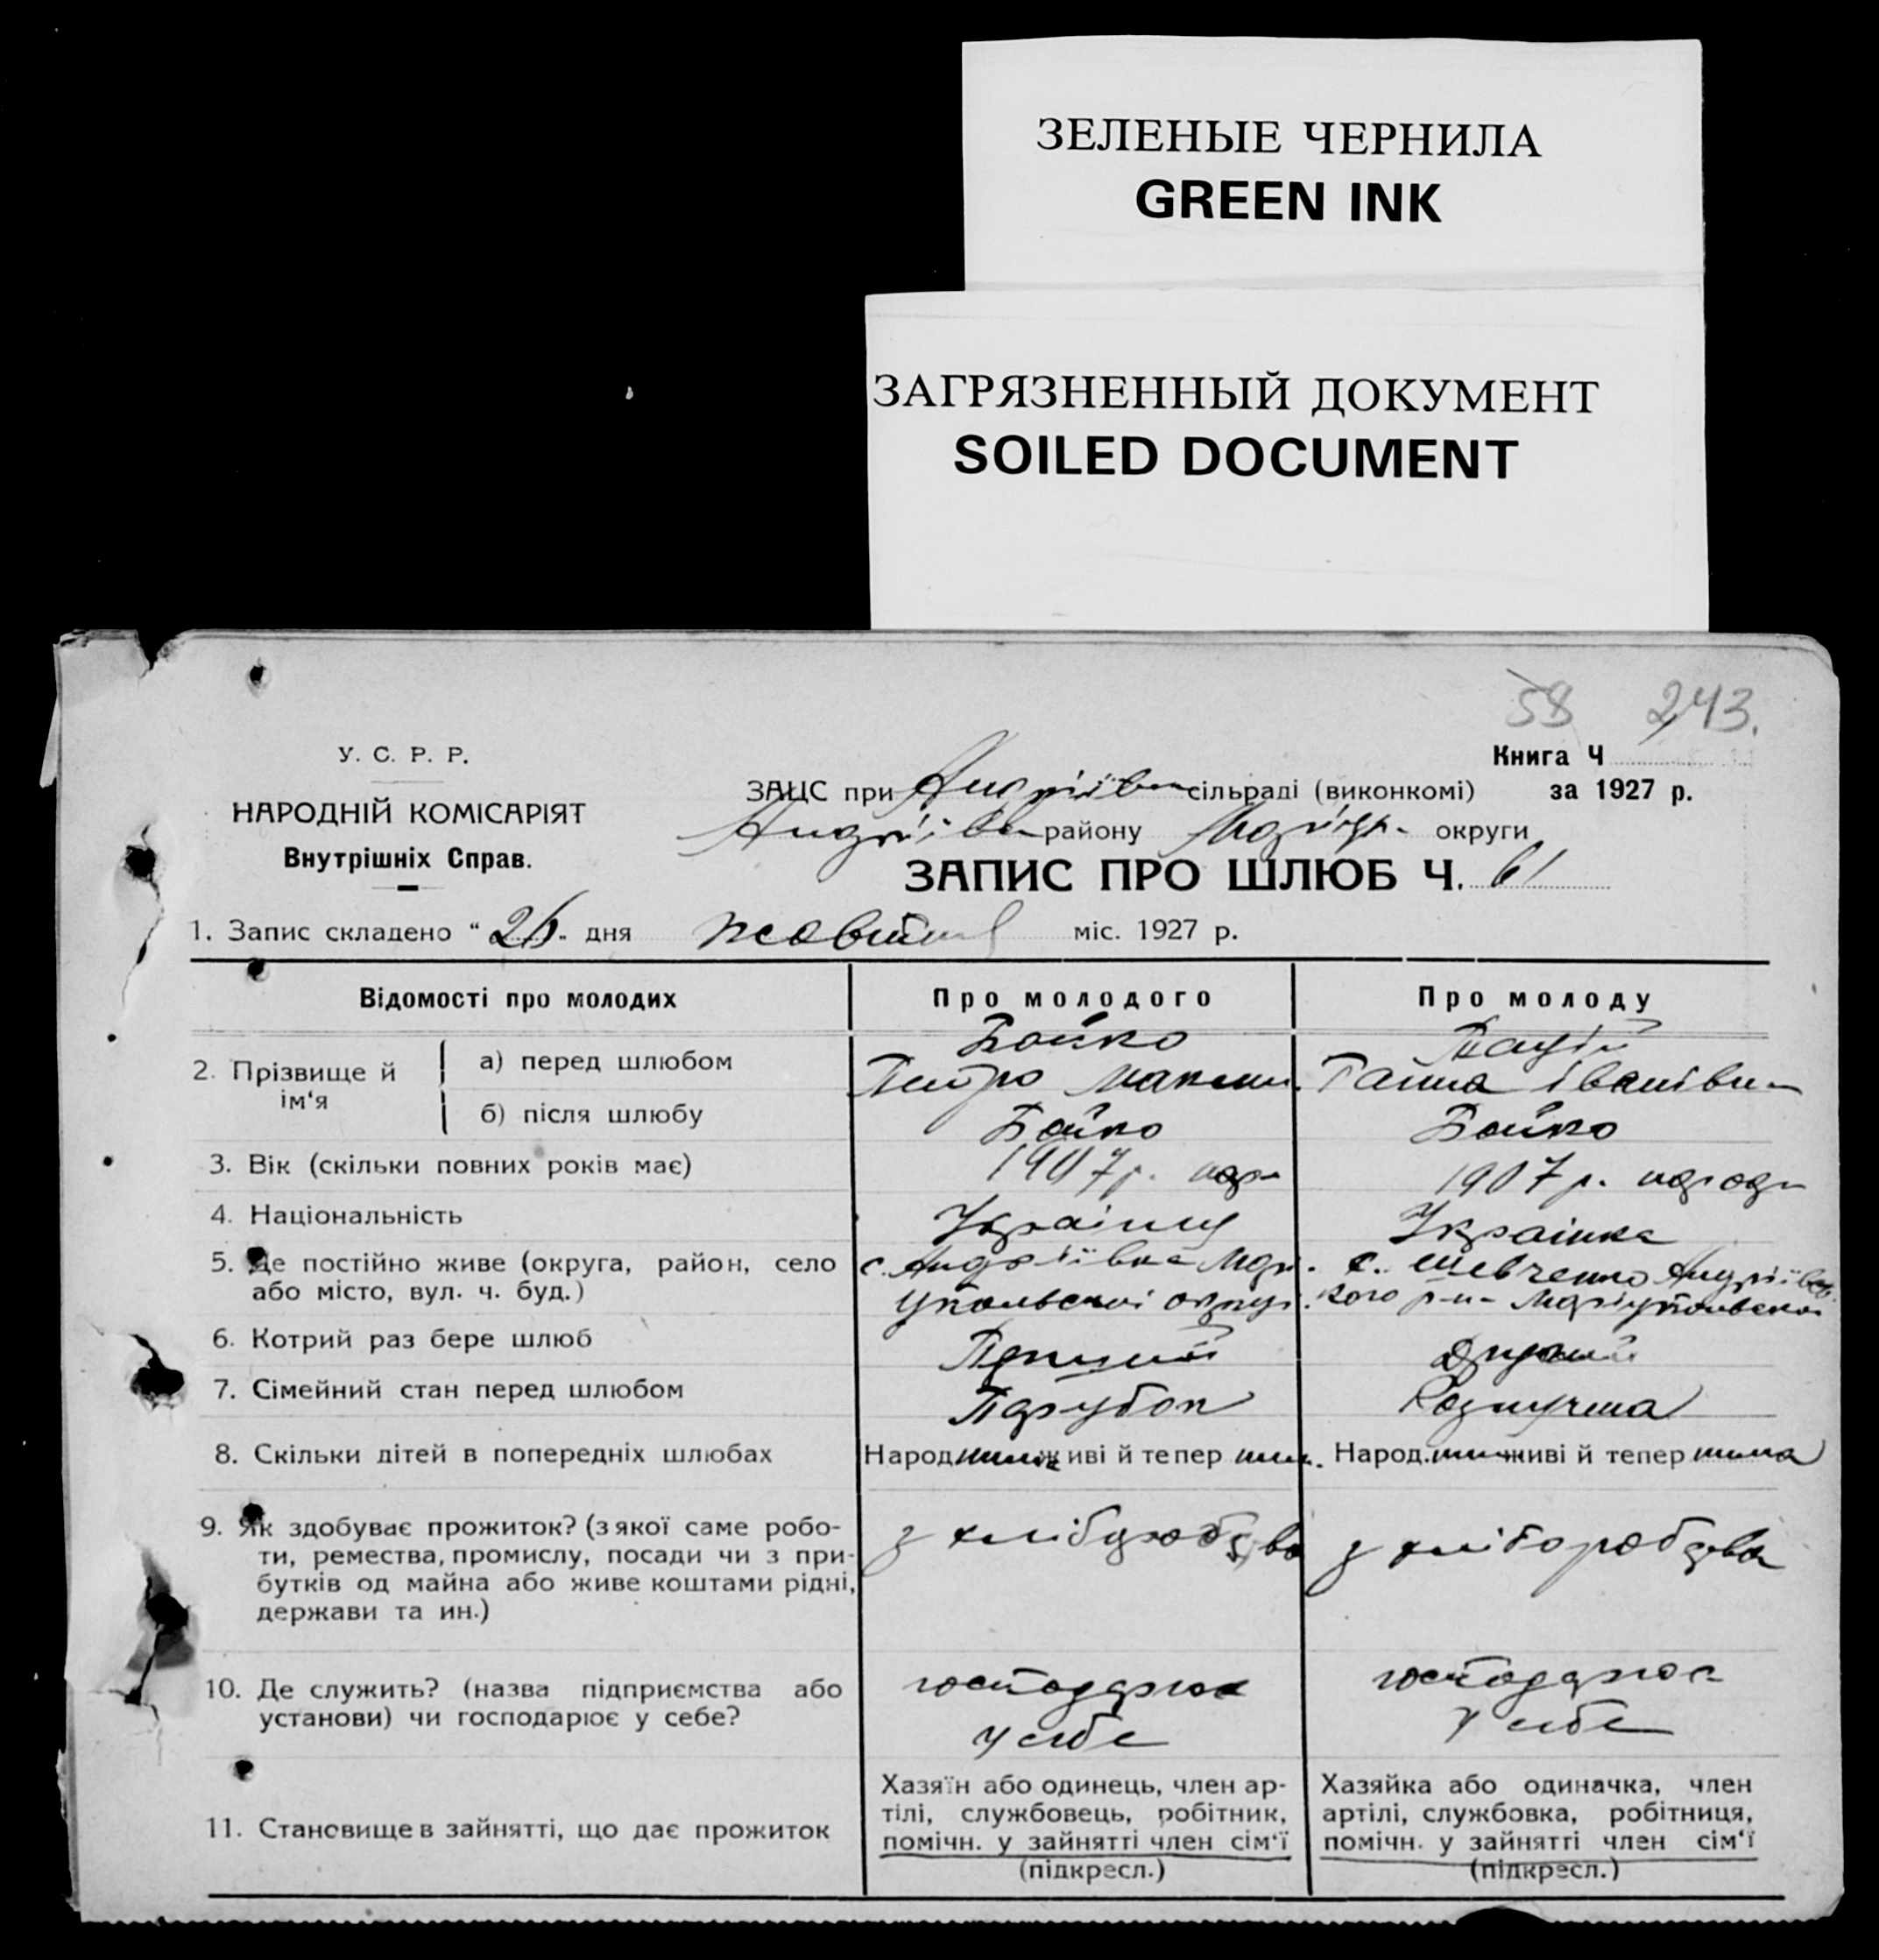 ЗЕЛЕНЫЕ ЧЕРНИЛА
GREEN INK
ЗАГРЯЗНЕННЫЙ ДОКУМЕНТ
SOILED DOCUMENT
58 243.
У. С. Р. Р.
НАРОДНІЙ КОМІСАРІЯТ
Внутрішніх Справ.
Книга Ч
ЗАЦС при Андріїв сільраді (виконкомі) за 1927 р.
Андріїв району Маріуп. округи
ЗАПИС ПРО ШЛЮБ Ч. 61
1. Запис складено " 26. дня жовтня міс. 1927 р.
Відомості про молодих
Про молодого
Про молоду
2. Прізвище й ім'я
а) перед шлюбом
Бойко
Петро Максим.
Ганна Іванівна
б) після шлюбу
Бойко
Бойко
3. Вік (скільки повних років має)
1907 р. нар
1907 р. народ
4. Національність
Українец
Українка
5. Де постійно живе (округа, район, село
або місто, вул. ч. буд.)
с. Андріївка Марі
упольської округ.
с. Шевченко Андріївсь
кого р-н Маріупольської
6. Котрий раз бере шлюб
Перший
Другий
7. Сімейний стан перед шлюбом
Парубок
Розлучена
8. Скільки дітей в попередніх шлюбах
Народ. нема живі й тепер нем.
Народ. нем живі й тепер нема
9. Як здобуває прожиток? (з якої саме робо-
ти, ремества, промислу, посади чи з при-
бутків од майна або живе коштами рідні,
держави та ин.)
з хліборобства
з хліборобства
10. Де служить? (назва підприємства або
установи) чи господарює у себе?
господарює
у себе
господарює
у себе
11. Становище в зайнятті, що дає прожиток
Хазяїн або одинець, член ар-
тілі, службовець, робітник,
помічн. у зайнятті член сім'ї
(підкресл.)
Хазяйка або одиначка, член
артілі, службовка, робітниця,
помічн. у зайнятті член сім'ї
(підкресл.)